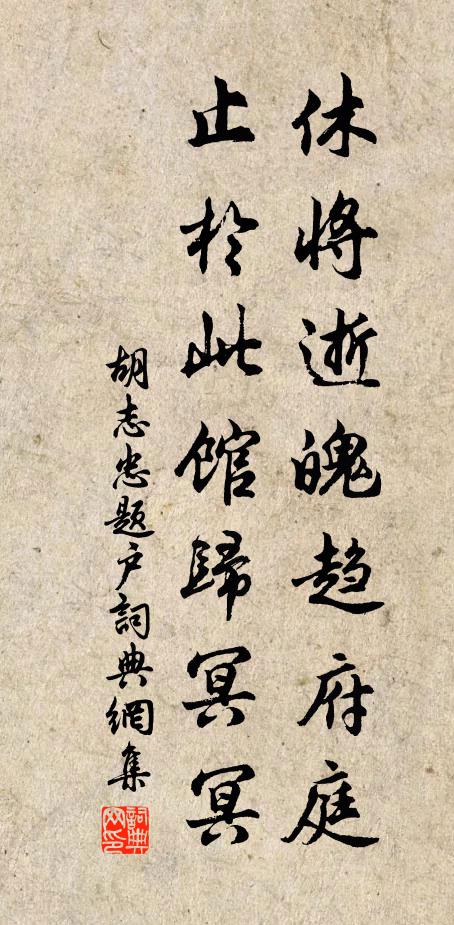 休将逝魄趋府庭
止於此馆歸冥冥
胡志忠题户詞典網集
詞典網印